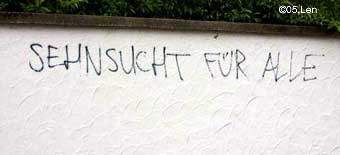 ©05.Len
SEHNSUCHT FÜR ALLE